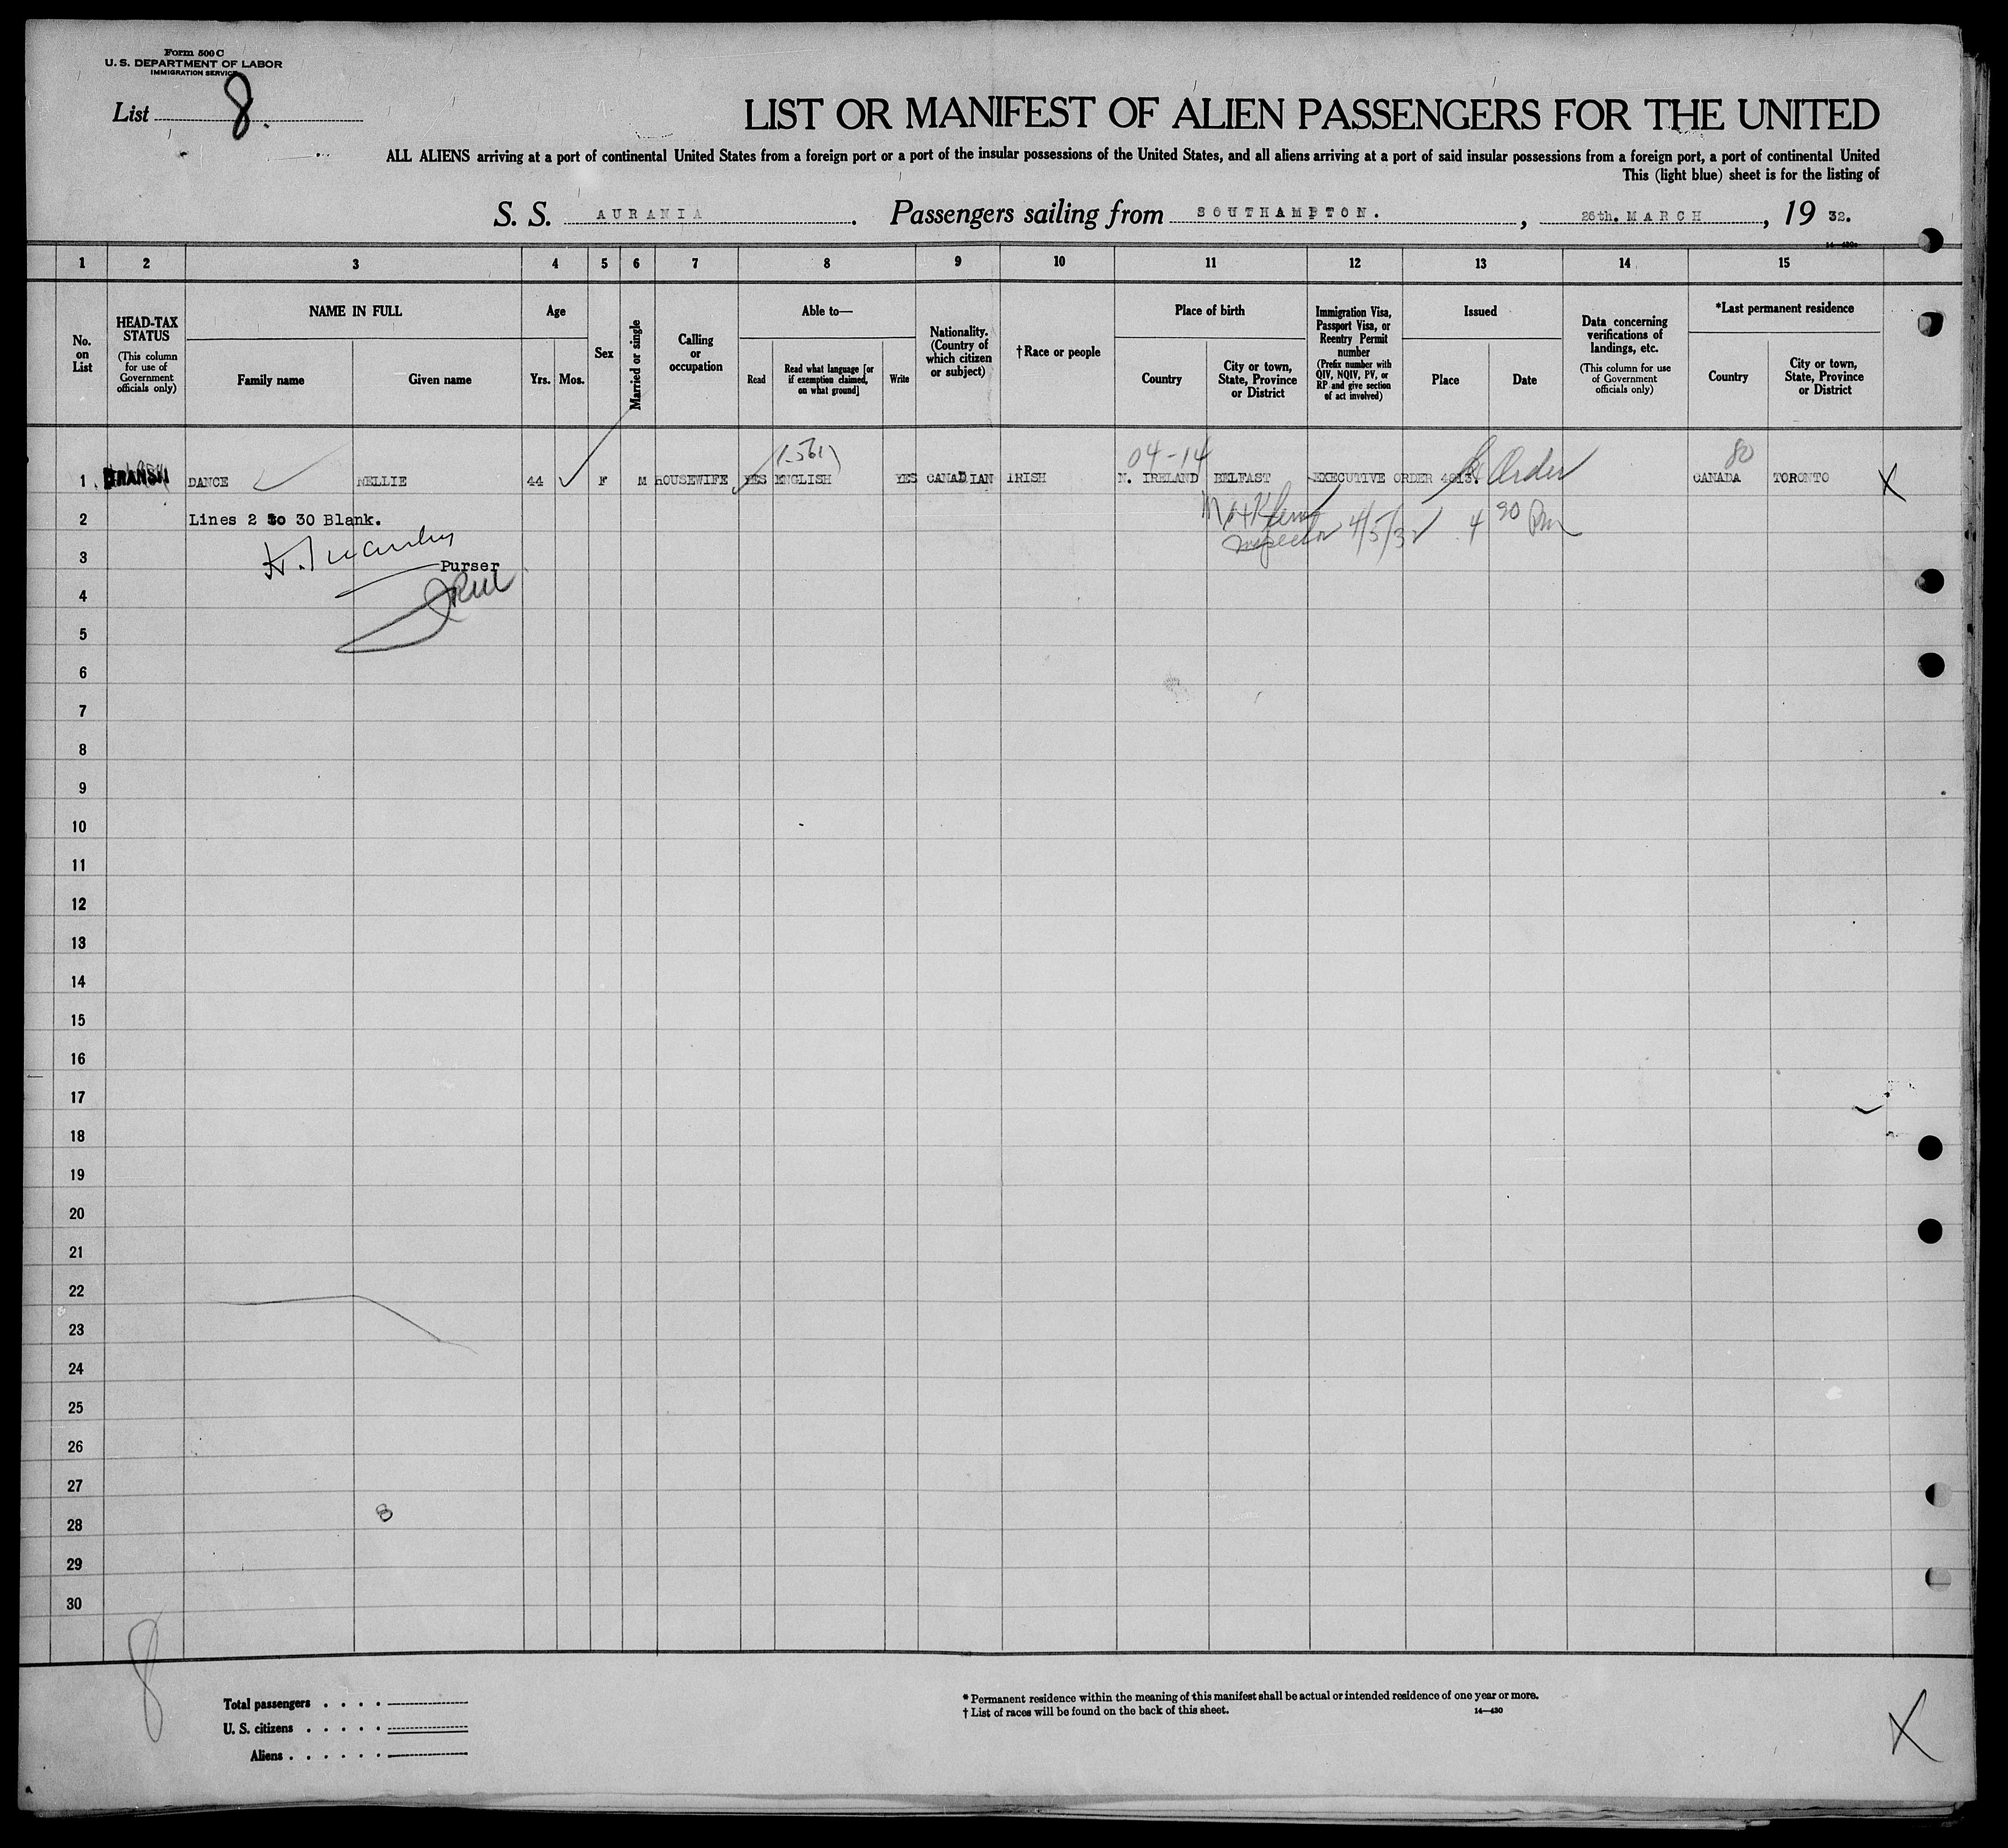 Form 500 C
U. S. DEPARTMENT OF LABOR
IMMIGRATION SERVICE
List 8.
LIST OR MANIFEST OF ALIEN PASSENGERS FOR THE UNITED
ALL ALIENS arriving at a port of continental United States from a foreign port or a port of the insular possessions of the United States, and all aliens arriving at a port of said insular possessions from a foreign port, a port of continental United
This (light blue) sheet is for the listing of
S. S. AURANIA. Passengers sailing from SOUTHAMPTON. , 26th. MARCH , 19 32.
1 2 3 4 5 6 7 8 9 10 11 12 13 14 15
No. on List
HEAD-TAX STATUS
(This column for use of Government officials only)
NAME IN FULL
Family name
Given name
Age
Yrs. Mos.
Sex
Married or single
Calling or occupation
Able to—
Read
Read what language [or if exemption claimed, on what ground]
Write
Nationality. (Country of which citizen or subject)
†Race or people
Place of birth
Country
City or town, State, Province or District
Immigration Visa, Passport Visa, or Reentry Permit number
(Prefix number with QIV, NQIV, PV, or RP and give section of act involved)
Issued
Place
Date
Data concerning verifications of landings, etc.
(This column for use of Government officials only)
*Last permanent residence
Country
City or town, State, Province or District
04-14
80
1 TRANSIT DANCE NELLIE 44 F M HOUSEWIFE YES ENGLISH YES CANADIAN IRISH N. IRELAND BELFAST EXECUTIVE ORDER 4813. Order CANADA TORONTO X
2 Lines 2 to 30 Blank.
Inspector 4/5/32 4 30 Pm
3
Purser
4
5
6
7
8
9
10
11
12
13
14
15
16
17
18
19
20
21
22
23
24
25
26
27
8
28
29
30
8
Total passengers . . . .
U. S. citizens . . . . .
Aliens . . . . . .
* Permanent residence within the meaning of this manifest shall be actual or intended residence of one year or more.
† List of races will be found on the back of this sheet.
14—430
X